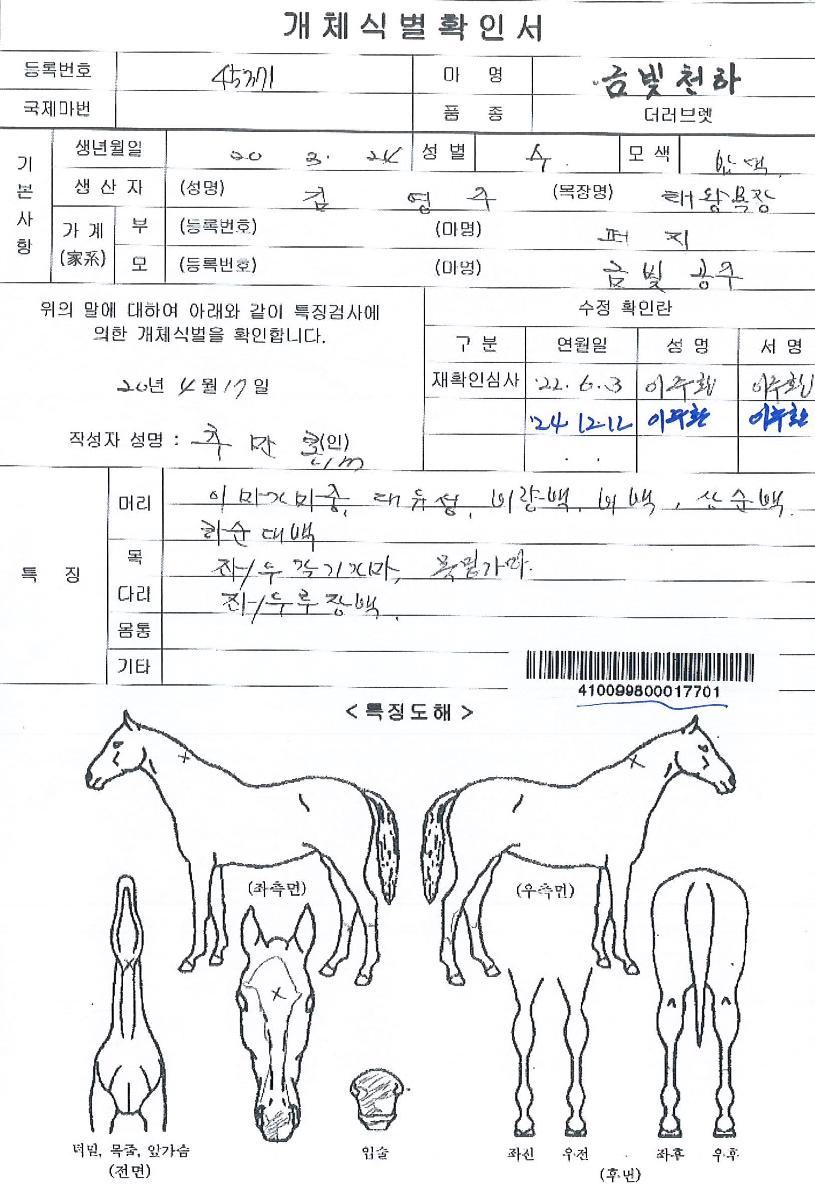 개체식별확인서
등록번호 45371 마 명 금빛천하
국제마번 품 종 더러브렛
기본사항 생년월일 20 3. 24 성 별 수. 모 색
생 산 자 (성명) 김 영 수 (목장명) 태왕목장
가 계 (家系) 부 (등록번호) (마명) 퍼 지
모 (등록번호) (마명) 금빛 공주
위의 말에 대하여 아래와 같이 특징검사에
의한 개체식별을 확인합니다.
20년 4월 17일
작성자 성명 : (인)
수정 확인란
구 분 연월일 성 명 서 명
재확인심사 '22. 6. 3
'24 12.12
특 징 머리 이마가마중, 대유성, 비량백, 비백, 상순백.
하순대백
목 좌/우 목밑가마.
다리 좌/우
몸통
기타
410099800017701
<특징도해>
(좌측면) (우측면)
턱밑, 목줄, 앞가슴
(전면)
입술
좌전 우전 좌후 우후
(후면)